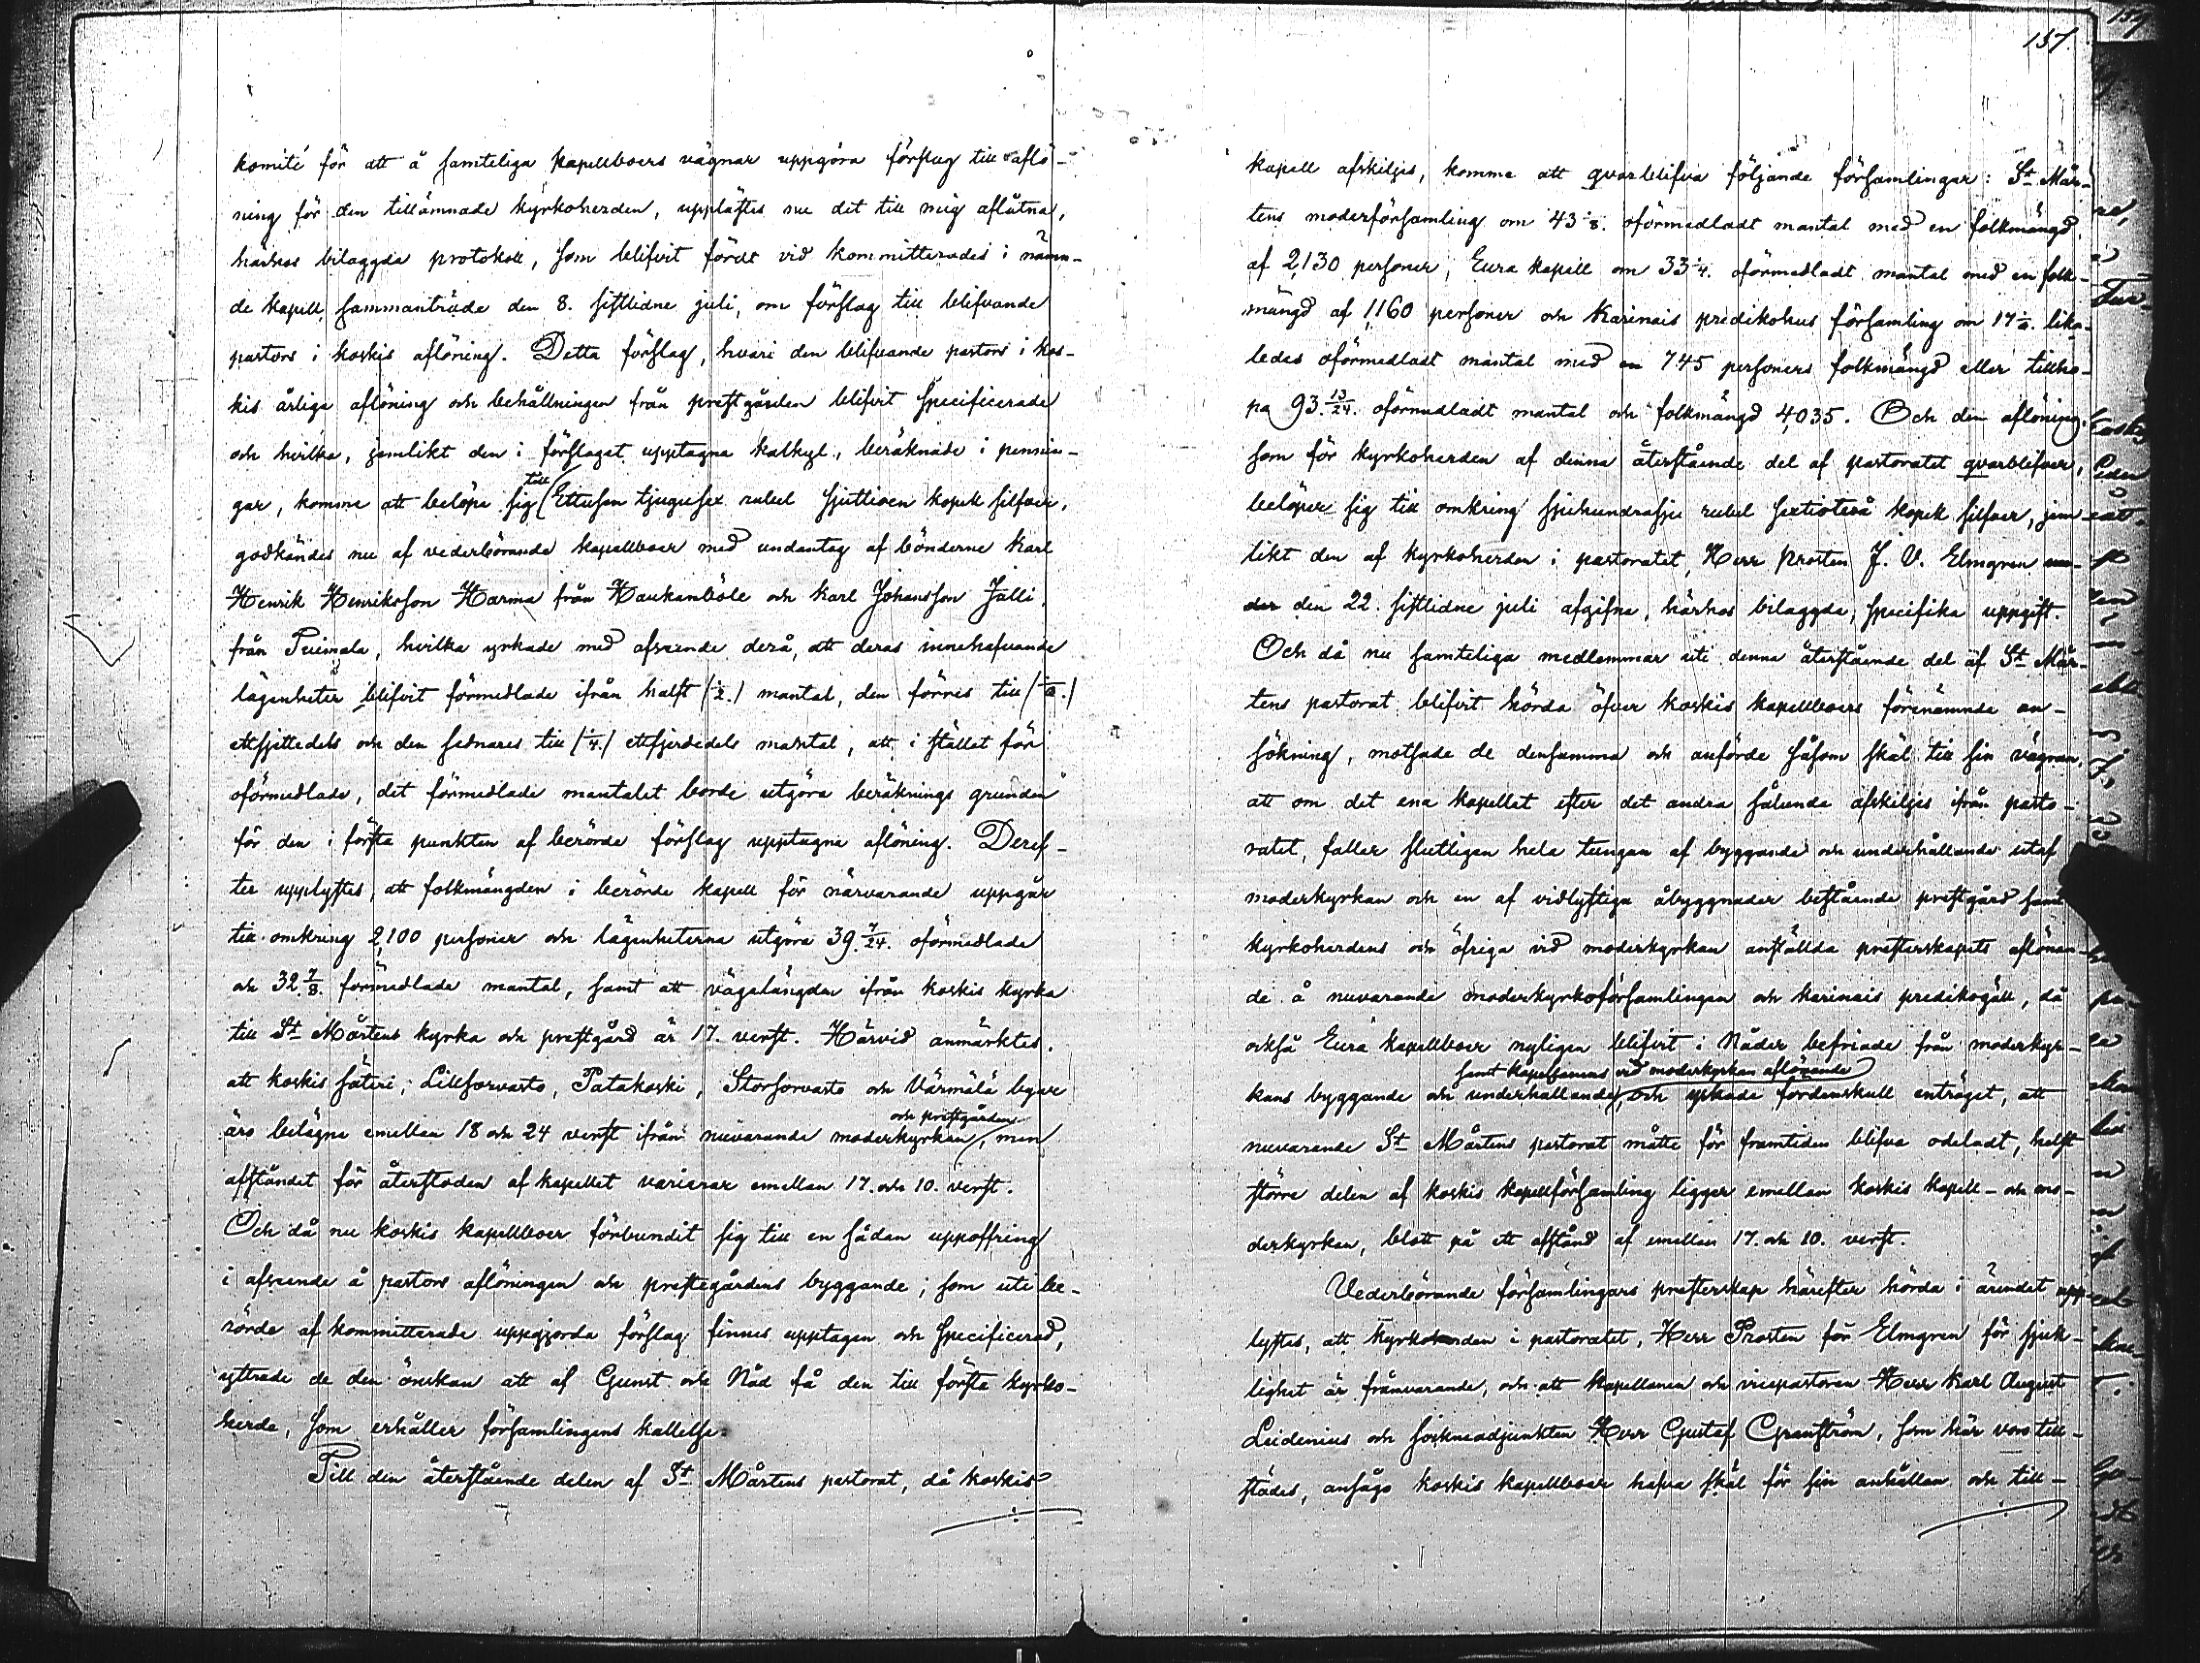 157
komité för att å samteliga kapellboers vägnar uppgöra förslag till aflö-
ning för den tillämnade kyrkoherden, upplästes nu det till mig aflåtna,
härhos bilaggda protokoll, som blifvit fördt vid kommitterades i nämn-
de kapell sammanträde den 8. sistlidne juli, om förslag till blifvande
pastors i koskis aflöning. Detta förslag, hvari den blifvande pastors i kos-
kis årliga aflöning och behållningen från prestgården blifvit specificerade
och hvilka, jemlikt den i förslaget upptagna kalkyl, beräknade i pennin-
gar, komme att belöpa sig till Ettusen tjugusex rubel sjuttioen kopek silfver,
godkändes nu af vederbörande kapellboer med undantag af bönderne Karl
Henrik Henriksson Harma från Haukamböle och Karl Johansson Jälli
från Tuimala, hvilka yrkade med afseende derå, att deras innehafvande
lägenheter blifvit förmedlade ifrån halft (1/2.) mantal, den förres till (1/6.)
ettsjettedels och den sednares till (1/4.) ettfjerdedels mantal, att i stället för
oförmedlade, det förmedlade mantalet borde utgöra beräknings grunden
för den i första punkten af berörde förslag upptagne aflöning. Deref-
ter upplystes, att folkmängden i berörde kapell för närvarande uppgår
till omkring 2,100 personer och lägenheterna utgöra 39 7/24. oförmedlade
och 32. 7/8. förmedlade mantal, samt att vägalängden ifrån koskis kyrka
till St Mårtens kyrka och prestgård är 17. verst. Härvid anmärktes.
att koskis säteri, Lillsorvasto, Patakoski, Storsorvasto och Värmälä byar
äro belägne emellan 18 och 24 verst ifrån nuvarande moderkyrkan och prestgården, men
afståndet för återstoden af kapellet varierar emellan 17. och 10. verst.
Och då nu koskis kapellboer förbundit sig till en sådan uppoffring
i afseende å pastors aflöningen och prestegårdens byggande, som uti be-
rörde af kommitterade uppgjorda förslag finnes upptagen och specificerad,
yttrade de den önskan att af Gunst och Nåd få den till första kyrko-
herde, som erhåller församlingens kallelse.
Till den återstående delen af St Mårtens pastorat, då koskis
kapell afskiljes, komme att qvarblifva följande församlingar: St Mår-
tens moderförsamling om 43 1/8. oförmedladt mantal med en folkmängd
af 2,130 personer, Eura kapell om 33 1/4. oförmedladt mantal med en folk-
mängd af 1,160 personer och Karinais predikohus församling om 17 1/6. lika-
ledes oförmedladt mantal med en 745 personers folkmängd eller tillho-
pa 93. 13/24. oförmedladt mantal och folkmängd 4,035. Och den aflöning.
som för kyrkoherden af denna återstående del af pastoratet qvarblifver,
belöper sig till omkring sjuhundrasju rubel sextiotvå kopek silfver, jem
likt den af kyrkoherden i pastoratet, Herr Prosten J. V. Elmgren un-
der den 22. sistlidne juli afgifna, härhos bilaggda, specifika uppgift.
Och då nu samteliga medlemmar uti denna återstående del af St Mår-
tens pastorat blifvit hörda öfver koskis kapellboers förenämnde an-
sökning, motsade de densamma och anförde såsom skäl till sin vägran
att om det ena kapellet efter det andra sålunda afskiljes ifrån pasto-
ratet, faller slutligen hela tungan af byggande och underhållande utaf
moderkyrkan och en af vidlyftiga åbyggnader bestående prestgård samt
kyrkoherdens och öfriga vid moderkyrkan anställda presterskapets aflönan-
de å nuvarande moderkyrkoförsamlingen och karinais predikogäll, då
också Eura kapellboer nyligen blifvit i Nåder befriade från moderkyr-
kans byggande och underhållande samt kapellanens vid moderkyrkan aflönande, och yrkade fördenskull enträget, att
nuvarande St Mårtens pastorat måtte för framtiden blifva odeladt, helst
större delen af koskis kapellförsamling ligger emellan koskis kapell- och mo-
derkyrkan, blott på ett afstånd af emellan 17. och 10. verst.
Vederbörande församlingars presterskap härefter hörda i ärendet upp-
lystes, att kyrkoherden i pastoratet, Herr Prosten för Elmgren för sjuk-
lighet är frånvarande, och att kapellanen och vicepastoren Herr Karl August
Leidenius och socknéadjunkten Herr Gustaf Granström, som här voro till-
städes, ansågo koskis kapellboer hafva skäl för sin anhållan och till-